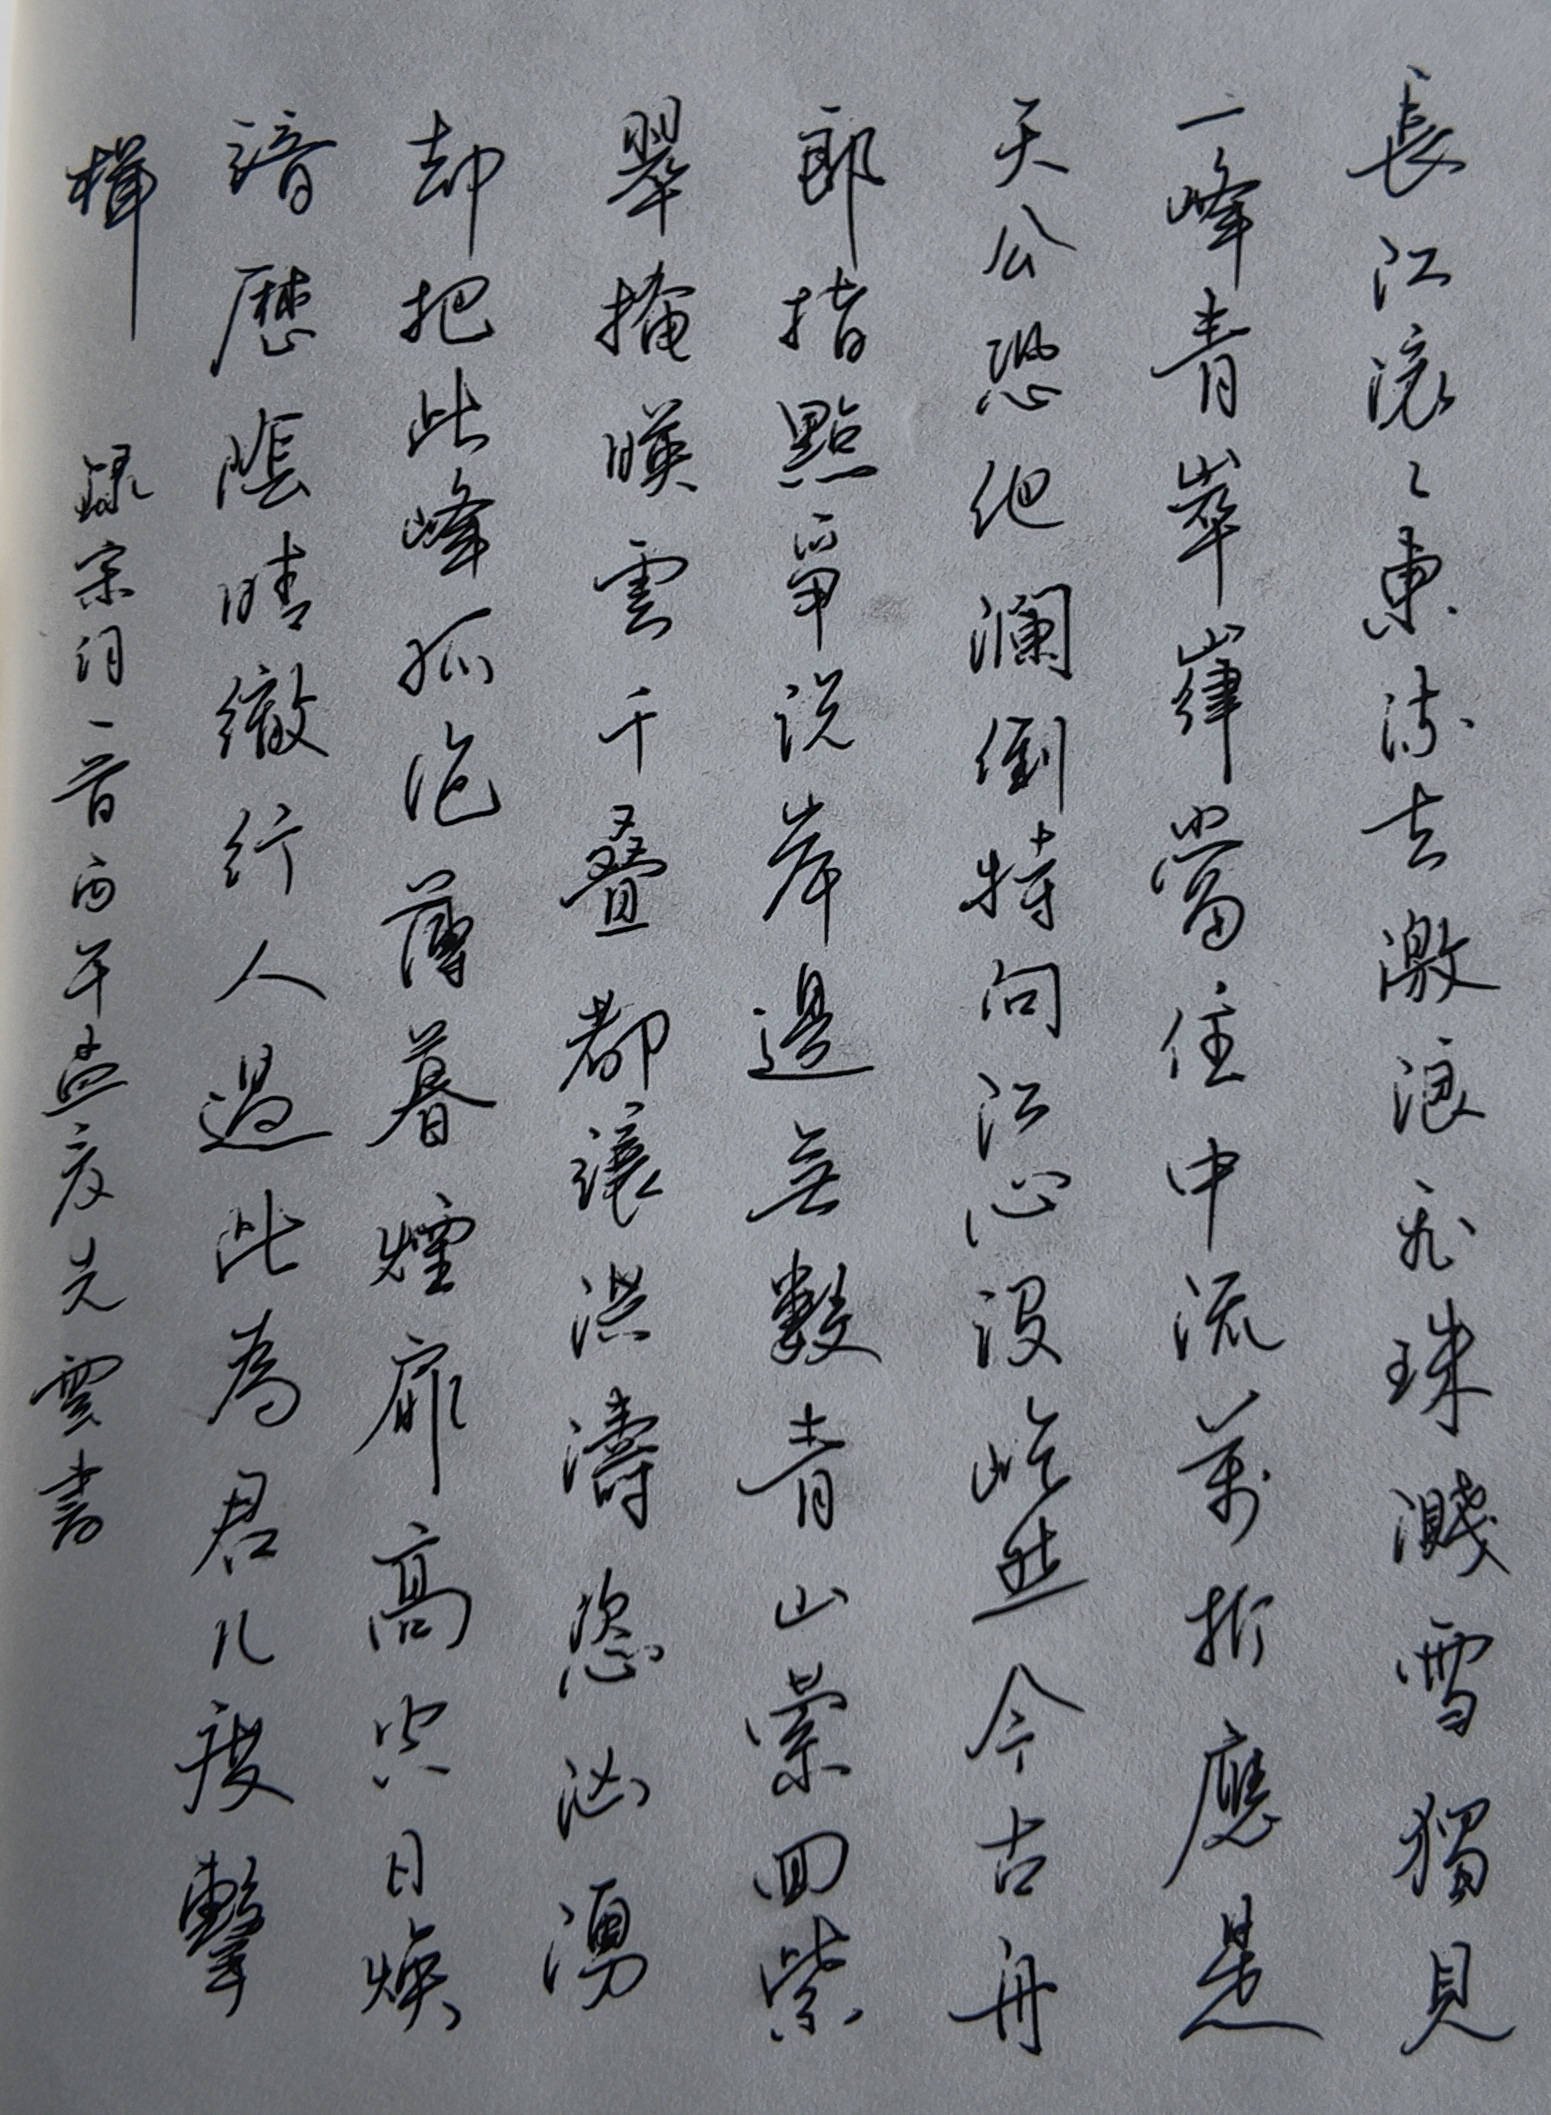 長江滚〻東流去激浪飛珠濺雪獨見
一峰青崒嵂當住中流萬折應是
天公恐他瀾倒特向江心設屹然今古舟
郎指點爭説岸邊無數青山縈回紫
翠掩暎雲千叠都讓洪濤恣洶湧
却把此峰孤絶薄暮煙扉高空日焕
諳歷陰晴徹行人過此為君几度擊
楫
録宋词一首丙午孟夏雲書